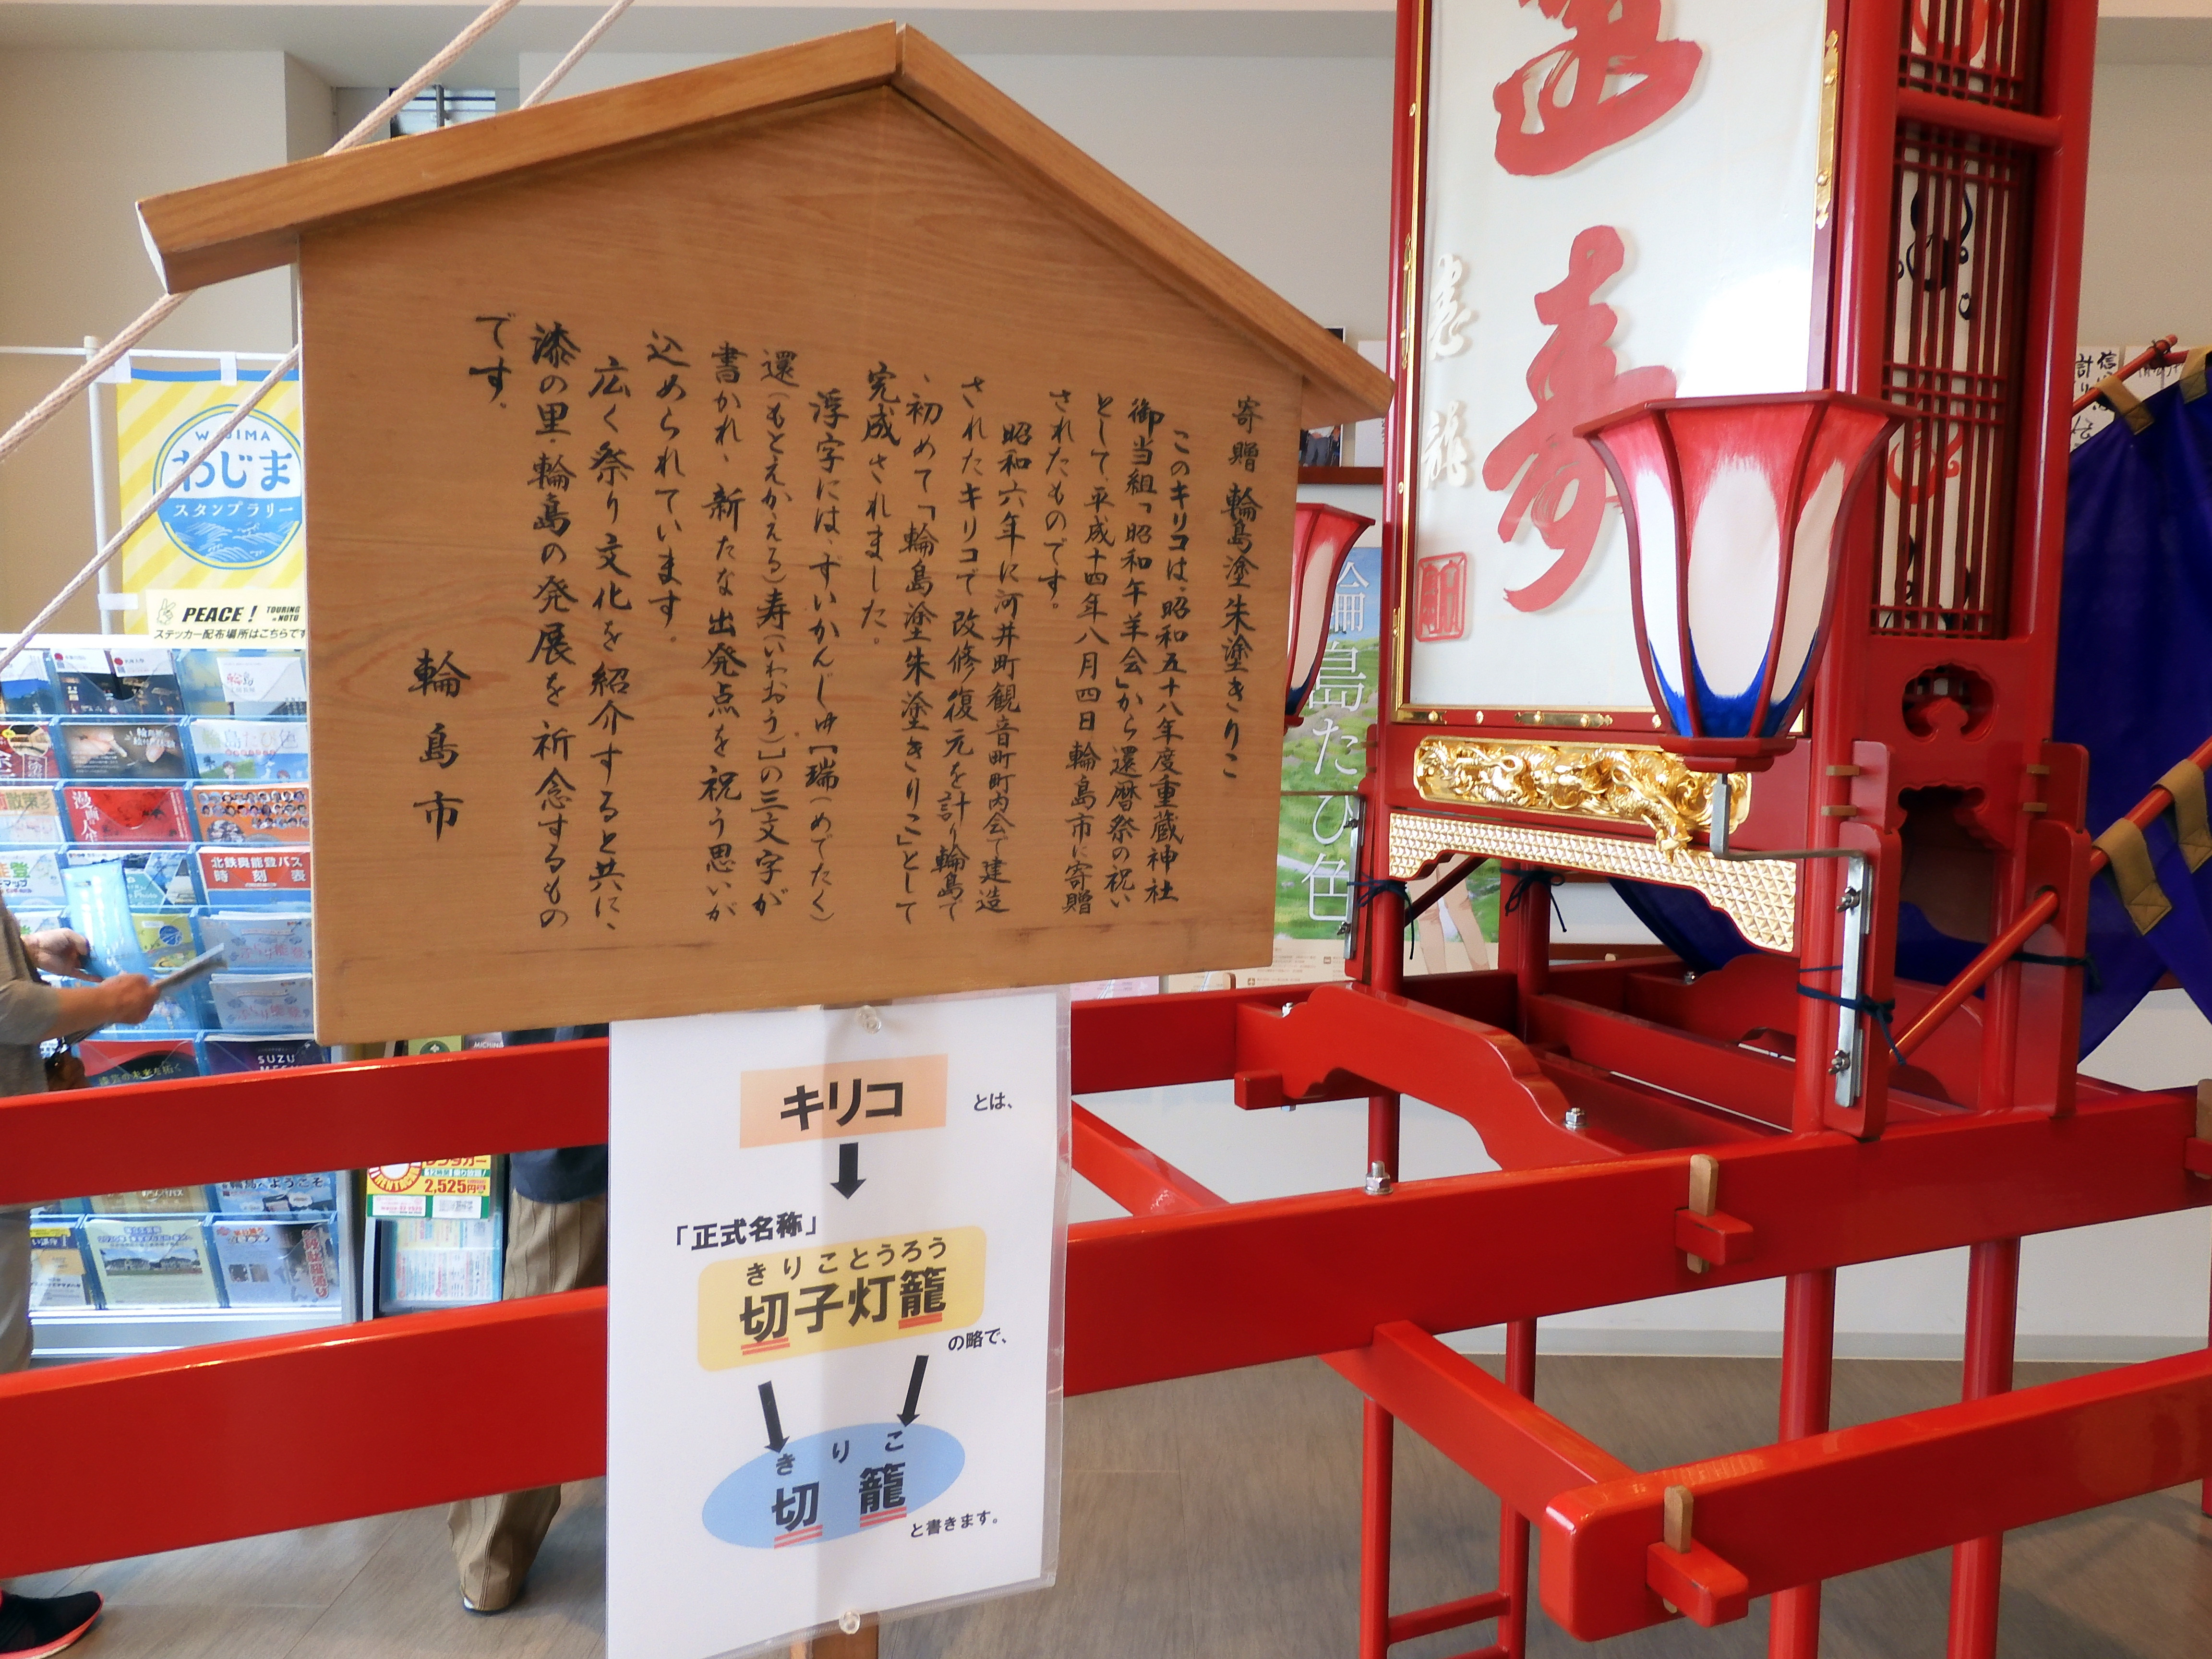 寄贈 輪島塗朱塗きりこ
このキリコは、昭和五十八年度重蔵神社
御当組「昭和午羊会」から還暦祭の祝い
として、平成十四年八月四日輪島市に寄贈
されたものです。
昭和六年に河井町観音町町内会で建造
されたキリコで改修復元を計り輪島で
、初めて「輪島塗朱塗きりこ」として
完成されました。
浮字には、ずいかんじゅ[瑞(めでたく)
還(もとえかえる)寿(いわおう)]の三文字が
書かれ、新たな出発点を祝う思いが
込められています。
広く祭り文化を紹介すると共に、
漆の里・輪島の発展を祈念するもの
です。
輪島市
キリコ とは、
「正式名称」
きりことうろう
切子灯籠
の略で、
きりこ
切籠
と書きます。
寿
WAJIMA
わじま
スタンプラリー
PEACE! TOURING NOTO
ステッカー配布場所はこちらです
輪島たび色
北鉄奥能登バス
時刻表
輪島たび色
SUZU
2,525円
ようこそ